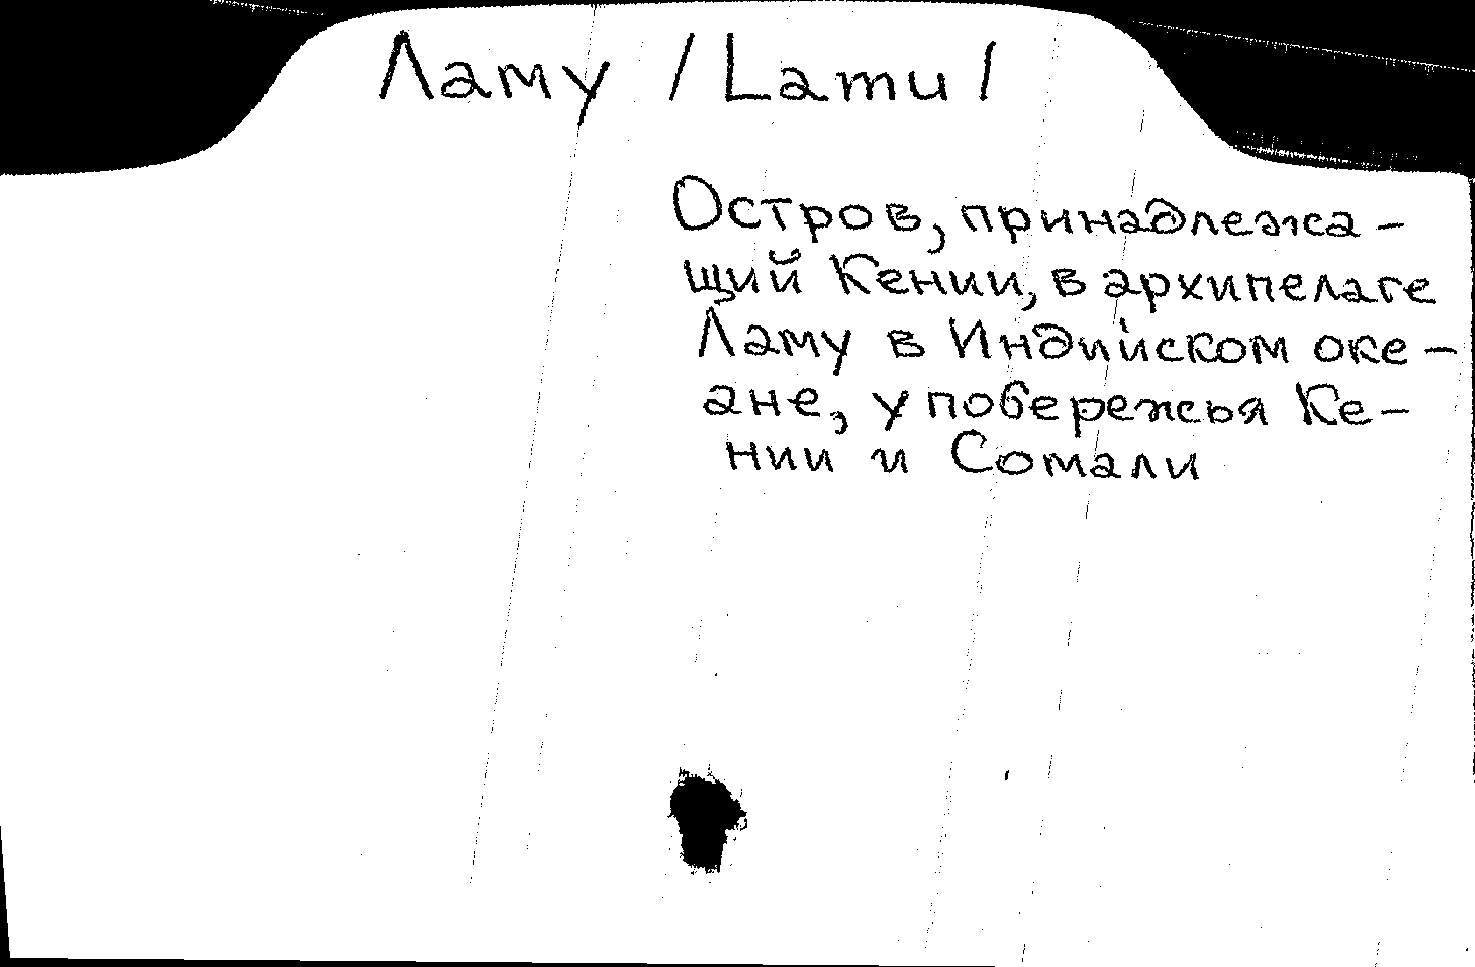 Ламу /Lamu/
Остров, принадлежа-
щий Кении, в архипелаге
Ламу в Индийском оке-
ане, у побережья Ке-
нии и Сомали